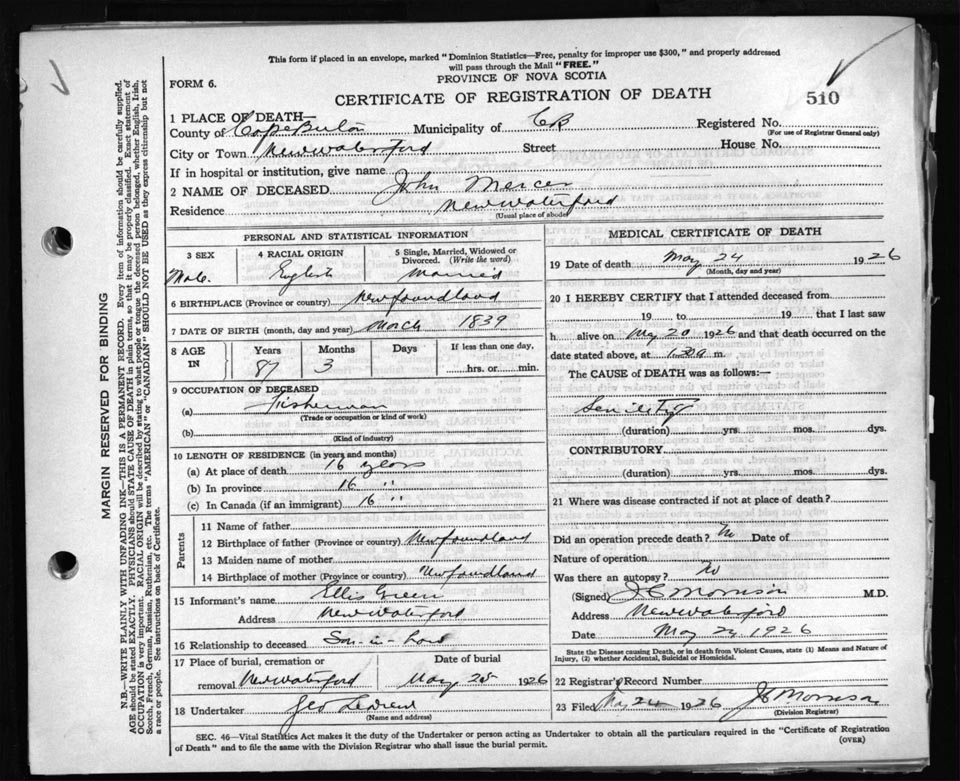 This form if placed in an envelope, marked "Dominion Statistics—Free, penalty for improper use $300," and properly addressed
will pass through the Mail "FREE."
FORM 6.
PROVINCE OF NOVA SCOTIA
CERTIFICATE OF REGISTRATION OF DEATH
510
1 PLACE OF DEATH—
County of Cape Breton Municipality of CB Registered No.
(For use of Registrar General only)
City or Town New Waterford Street House No.
If in hospital or institution, give name
2 NAME OF DECEASED John Mercer
Residence New Waterford
(Usual place of abode)
PERSONAL AND STATISTICAL INFORMATION
3 SEX Male
4 RACIAL ORIGIN English
5 Single, Married, Widowed or Divorced. (Write the word) Married
6 BIRTHPLACE (Province or country) Newfoundland
7 DATE OF BIRTH (month, day and year) March 1839
8 AGE IN Years 87 Months 3 Days If less than one day, hrs. or min.
9 OCCUPATION OF DECEASED
(a) Fisherman
(Trade or occupation or kind of work)
(b)
(Kind of industry)
10 LENGTH OF RESIDENCE (in years and months)
(a) At place of death 16 years
(b) In province 16 "
(c) In Canada (if an immigrant) 16 "
Parents
11 Name of father
12 Birthplace of father (Province or country) Newfoundland
13 Maiden name of mother
14 Birthplace of mother (Province or country) Newfoundland
15 Informant's name Ellis Green
Address New Waterford
16 Relationship to deceased Son-in-Law
17 Place of burial, cremation or removal New Waterford Date of burial May 25 1926
18 Undertaker Geo
(Name and address)
MEDICAL CERTIFICATE OF DEATH
19 Date of death May 24 1926
(Month, day and year)
20 I HEREBY CERTIFY that I attended deceased from
19 to 19 that I last saw
h alive on May 20 1926 and that death occurred on the
date stated above, at 1.30 m.
The CAUSE of DEATH was as follows:—
Senility
(duration) yrs. mos. dys.
CONTRIBUTORY
(duration) yrs. mos. dys.
21 Where was disease contracted if not at place of death?
Did an operation precede death? No Date of
Nature of operation
Was there an autopsy? No
(Signed) J C Morrison M.D.
Address New Waterford
Date May 24 1926
State the Disease causing Death, or in death from Violent Causes, state (1) Means and Nature of
Injury, (2) whether Accidental, Suicidal or Homicidal.
22 Registrar's Record Number
23 Filed May 24 1926 Morrison
(Division Registrar)
SEC. 46—Vital Statistics Act makes it the duty of the Undertaker or person acting as Undertaker to obtain all the particulars required in the "Certificate of Registration
of Death" and to file the same with the Division Registrar who shall issue the burial permit.
(OVER)
MARGIN RESERVED FOR BINDING
N.B.—WRITE PLAINLY WITH UNFADING INK—THIS IS A PERMANENT RECORD. Every item of information should be carefully supplied.
AGE should be stated EXACTLY. PHYSICIANS should STATE CAUSE OF DEATH in plain terms, so that it may be properly classified. Exact statement of
OCCUPATION is very important. RACIAL ORIGIN will be described by stating to what people or tongue the deceased person belonged, whether English, Irish,
Scotch, French, German, Russian, Ruthenian, etc. The terms "AMERICAN" or "CANADIAN" SHOULD NOT BE USED as they express citizenship but not
a race or people. See instructions on back of Certificate.